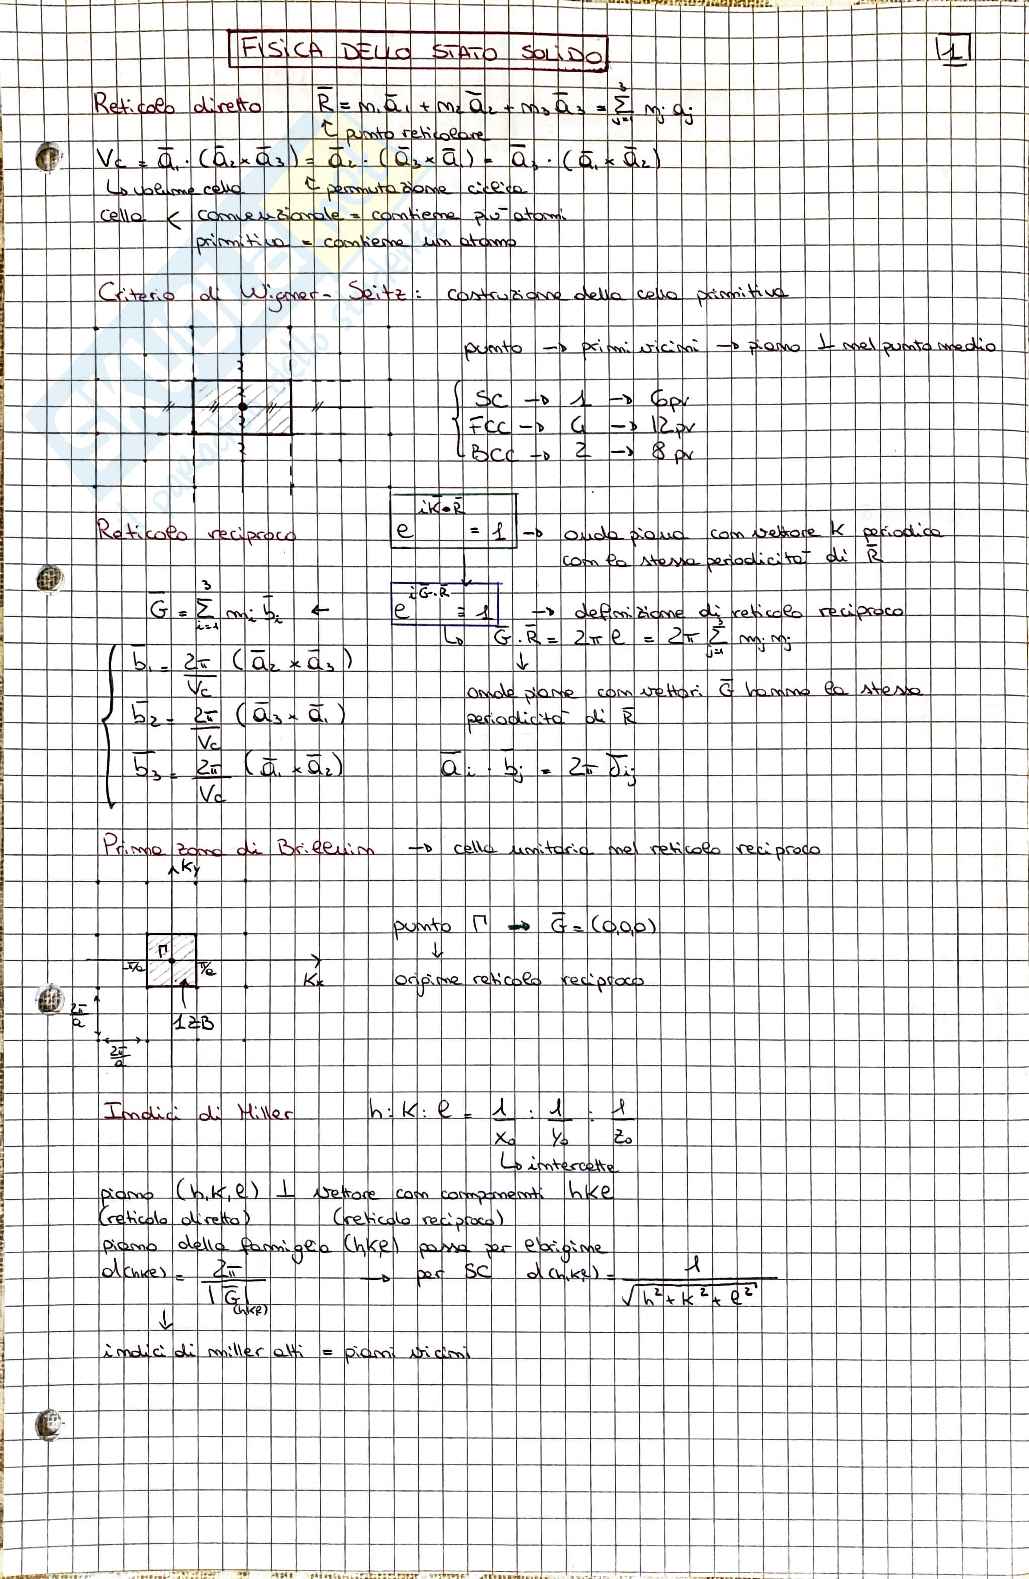 FISICA DELLO STATO SOLIDO
1
Reticolo diretto R̄ = n₁ā₁ + n₂ā₂ + n₃ā₃ = Σ³ⱼ₌₁ nⱼ aⱼ
↳ punto reticolare
Vc = ā₁ · (ā₂ × ā₃) = ā₂ · (ā₃ × ā₁) = ā₃ · (ā₁ × ā₂)
↳ volume cella ↳ permutazione ciclica
cella < convenzionale = contiene più atomi
primitiva = contiene un atomo
Criterio di Wigner-Seitz: costruzione della cella primitiva
punto → primi vicini → piano ⊥ nel punto medio
SC → 1 → 6 pv
FCC → 4 → 12 pv
BCC → 2 → 8 pv
Reticolo reciproco e^(iK̄·R̄) = 1 → onda piana con vettore K periodica
con la stessa periodicità di R̄
Ḡ = Σ³ᵢ₌₁ mᵢ b̄ᵢ ← e^(iḠ·R̄) = 1 → definizione di reticolo reciproco
↳ Ḡ·R̄ = 2π l = 2π Σ³ⱼ₌₁ mⱼ nⱼ
b̄₁ = 2π/Vc (ā₂ × ā₃)
onde piane con vettori Ḡ hanno la stessa
periodicità di R̄
b̄₂ = 2π/Vc (ā₃ × ā₁)
b̄₃ = 2π/Vc (ā₁ × ā₂) āᵢ · b̄ⱼ = 2π δij
Prima zona di Brillouin → cella unitaria nel reticolo reciproco
Ky
punto Γ → Ḡ = (0,0,0)
Γ
-π/a π/a
Kx
origine reticolo reciproco
2π/a
1ZB
2π/a
Indici di Miller h : k : l = 1/x₀ : 1/y₀ : 1/z₀
↳ intercette
piano (h,k,l) ⊥ vettore con componenti hkl
(reticolo diretto) (reticolo reciproco)
piano della famiglia (hkl) passa per l'origine
d(hkl) = 2π/|Ḡ(hkl)| → per SC d(h,k,l) = 1/√(h² + k² + l²)
↓
indici di miller alti = piani vicini